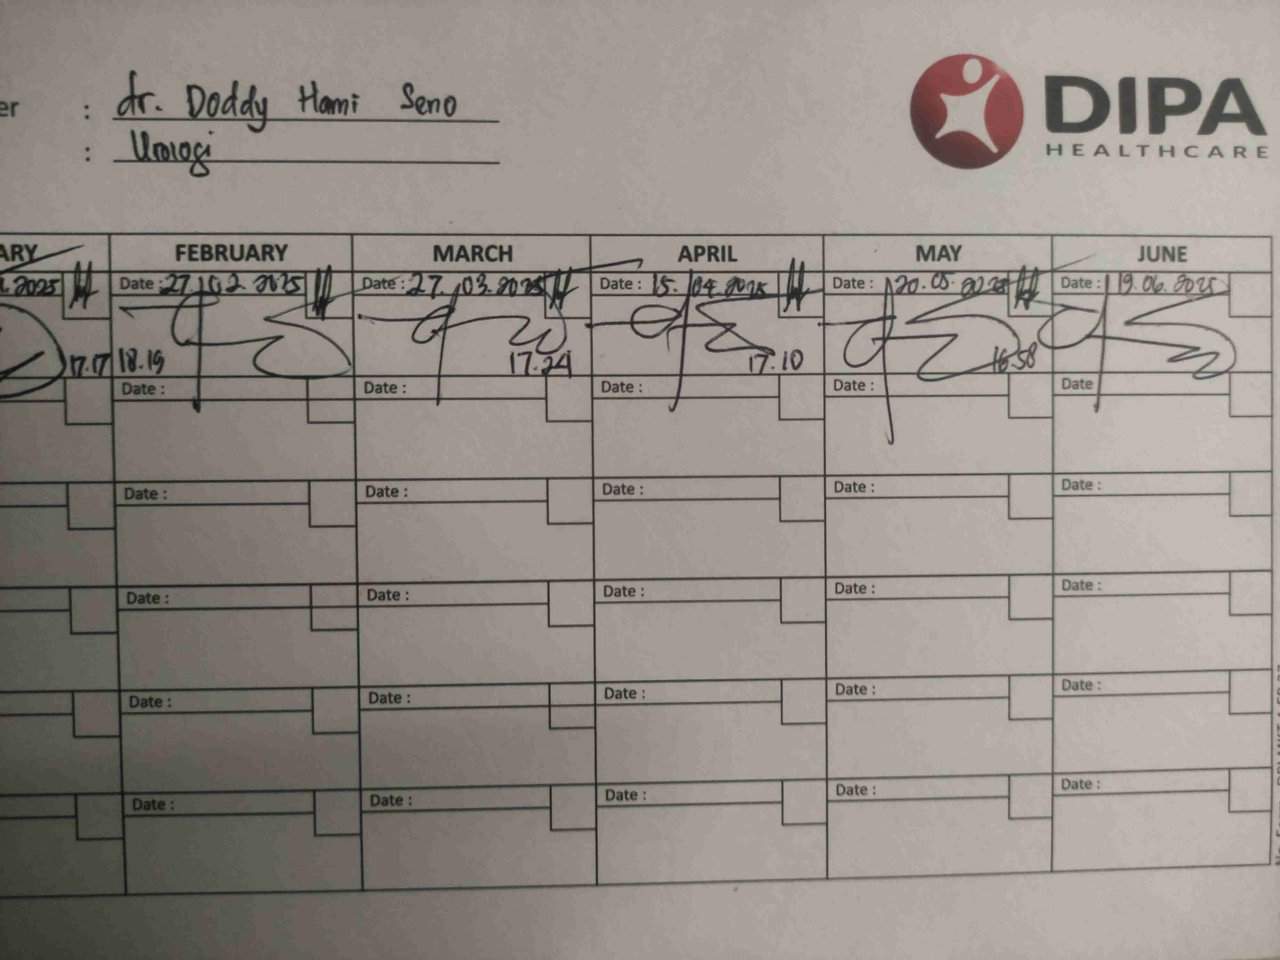 er : dr. Doddy Hami Seno
: Urologi
DIPA
HEALTHCARE
ARY FEBRUARY MARCH APRIL MAY JUNE
.2025 Date : 27.02.2025 Date : 27.03.2025 Date : 15.04.2025 Date : 20.05.2025 Date : 19.06.2025
17.17 18.19 17.24 17.10 16.58
Date : Date : Date : Date : Date
Date : Date : Date : Date : Date :
Date : Date : Date : Date : Date :
Date : Date : Date : Date : Date :
Date : Date : Date : Date : Date :